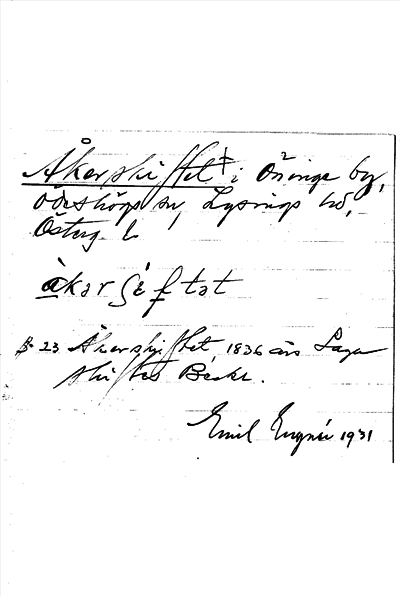 Åkerskiftet † i Öninge by,
Ödeshögs sn, Lysings hd,
Österg. l.
åkərʃɛftət
B. 23 Åkerskiftet, 1836 års Laga
skiftes Beskr.
Emil 1931